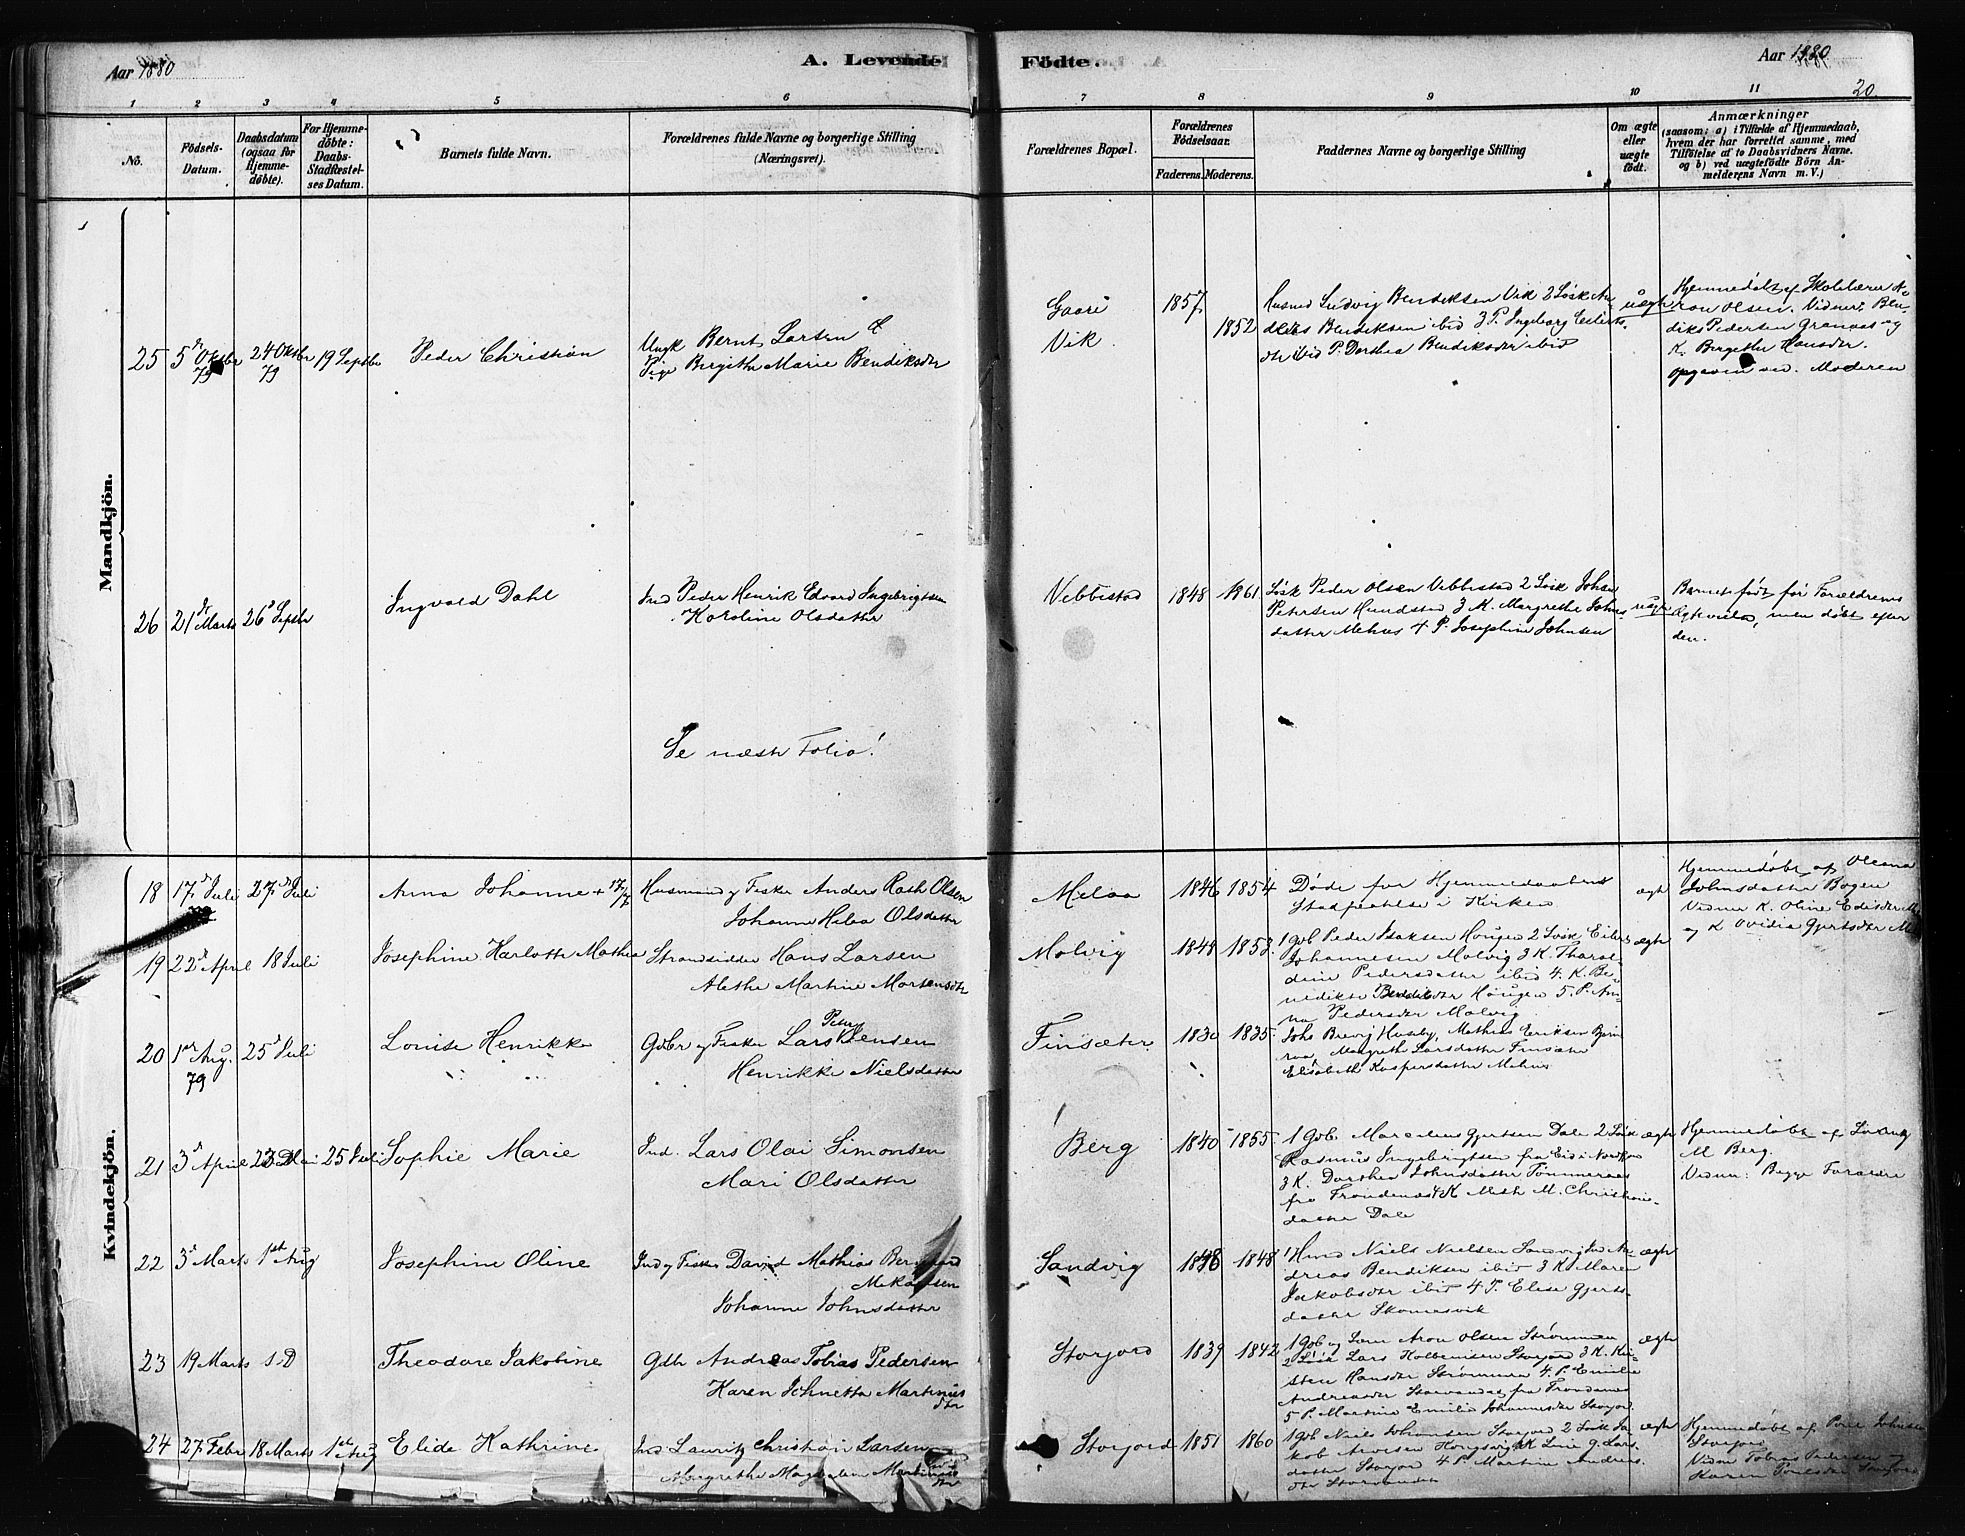 Aar 1880
A. Levende
Födte.
Aar 1880
20
1 2 3 4 5 6 7 8 9 10 11
Nô.
Födsels-
Datum.
Daabsdatum
(ogsaa for
Hjemme-
døbte).
For Hjemme-
döbte:
Daabs-
Stadfæstel-
ses Datum.
Barnets fulde Navn.
Forældrenes fulde Navne og borgerlige Stilling
(Næringsvei).
Forældrenes Bopæl.
Forældrenes
Födselsaar.
Faderens. Moderens.
Faddernes Navne og borgerlige Stilling
Om ægte
eller
uægte
födt.
Anmærkninger
(saasom: a) i Tilfælde af Hjemmedaab,
hvem der har forrettet samme, med
Tilföielse af to Daabsvidners Navne.
og b) ved uægtefödte Börn An-
melderens Navn m. V.)
Mandkjön.
25 5 Oktbr 79 24 Oktbr 79 19 Septbr Peder Christian
Ungk Bernt Larsen &
Pige Birgitha Marie Bendiksdtr
Vik
1857
1852
Husmd Ludvig Bendiksen Vik 2 Løsk An-
dreas Bendiksen ibid 3 P. Ingeborg Eilerts-
dtr ibid P. Dorthea Bendiksdtr ibid
uægte
Hjemmedøbt af Skolelærer A-
ron Olsen. Vidner: Ben-
dik Pedersen Grannes og
K. Bergithe Hansdtr.
opgaven ved. Moderen
26 21 Marts 26 Septbr Ingvald Dahl
Ind Peder Henrik Edvard Ingebrigtsen
Karoline Olsdatter
Vebbestad 1848 1861
Løsk Peder Olsen Vebbestad 2 Løsk Johan
Petersen Hundstad 3 K. Margrethe Johns-
datter Mehus 4 P. Josephine Johnsen
uægte
Barnet født før Forældrenes
Ægtevielse, men døbt efter
den.
Se næste Folio!
Kvindekjön.
18 17 Juli 27 Juli Anna Johanne + 17/7
Husmand og Fisker Anders Rath Olsen
Johanne Olsdatter
Melaa 1846 1854
Døde før Hjemmedaabens
Stadfæstelse i Kirken
ægte
Hjemmedøbt af Oleana
Johnsdatter Bogen
Vidner K. Oline
og K Ovidia Gjertsdtr
19 22 April 18 Juli Josephine Karlotte Mathea
Strandsidder Hans Larsen
Alethe Martine Mortensdtr
Molvig 1848 1853
1 Gdb Peder Isaksen Hougen 2 Løsk Eilert
Johannesen Molvig 3 K. Tharal-
dine Pedersdatter ibid 4. K. Be-
nedikte Hougen 5. P. An-
na Pedersdtr Molvig
ægte
20 1 Aug. 79 25 Juli Louise Henrikke
Gdbr og Fisker Lars Peter Jensen
Henrikke Nielsdatter
Finsæter 1830 1835
Johs Husby, Mathias Eriksen
Margrethe Larsdatter Finsæter
Elisabeth Kaspersdatter Mehus
21 3 April 23 Mai 25 Juli Sophie Marie
Ind. Lars Olai Simonsen
Mari Olsdatter
Berg 1840 1855
1 Gdb. Gjertsen Dale 2 Løsk
Rasmus Ingebrigtsen fra Eid i
3 K. Dorthea Johnsdatter Tömmeraas
fra Trondenæs 4 K Meth M. Christian-
datter Dale
ægte
Hjemmedøbt af
M Berg.
Vidner: Begge Forældre
22 3 Marts 1st Aug Josephine Oline
Ind og Fisker David Mathias
Johanne Johnsdatter
Sandvig 1848
1 Hmd Niels Nielsen Sandvig Ind An-
dreas Bendiksen ibid 3 K. Maren
Jakobsdtr ibid 4 P. Elise Gjerts-
datter Skomesvik
ægte
23 19 Marts s. D Theodore Jakobine
Gdb Andreas Tobias Pedersen
Karen Johnetta Martinus
dtr
Storjord 1839 1842
1 Gdb og Aron Olsen Strømmen
2 Løsk Lars Storjord 3 K. Kir-
sten Hansdtr Strømmen 4. P. Emilie
Andreasdtr fra Trondenes
5 P. Martine Emilie Johannesdtr Storjord
ægte
24 27 Febr 18 Marts 1st Aug Elide Kathrine
Ind Lauritz Christian Larsen
Margrethe Magdalena
dtr
Storjord 1851 1860
1 Gdb Niels Johansen Storjord 2 Løsk Ja-
kob K Lars-
datter Storjord 4 P. Martine Andreas-
dtr
ægte
Hjemmedøbt af
Storjord
Vidn Tobias Pedersen og
Karen Storjord